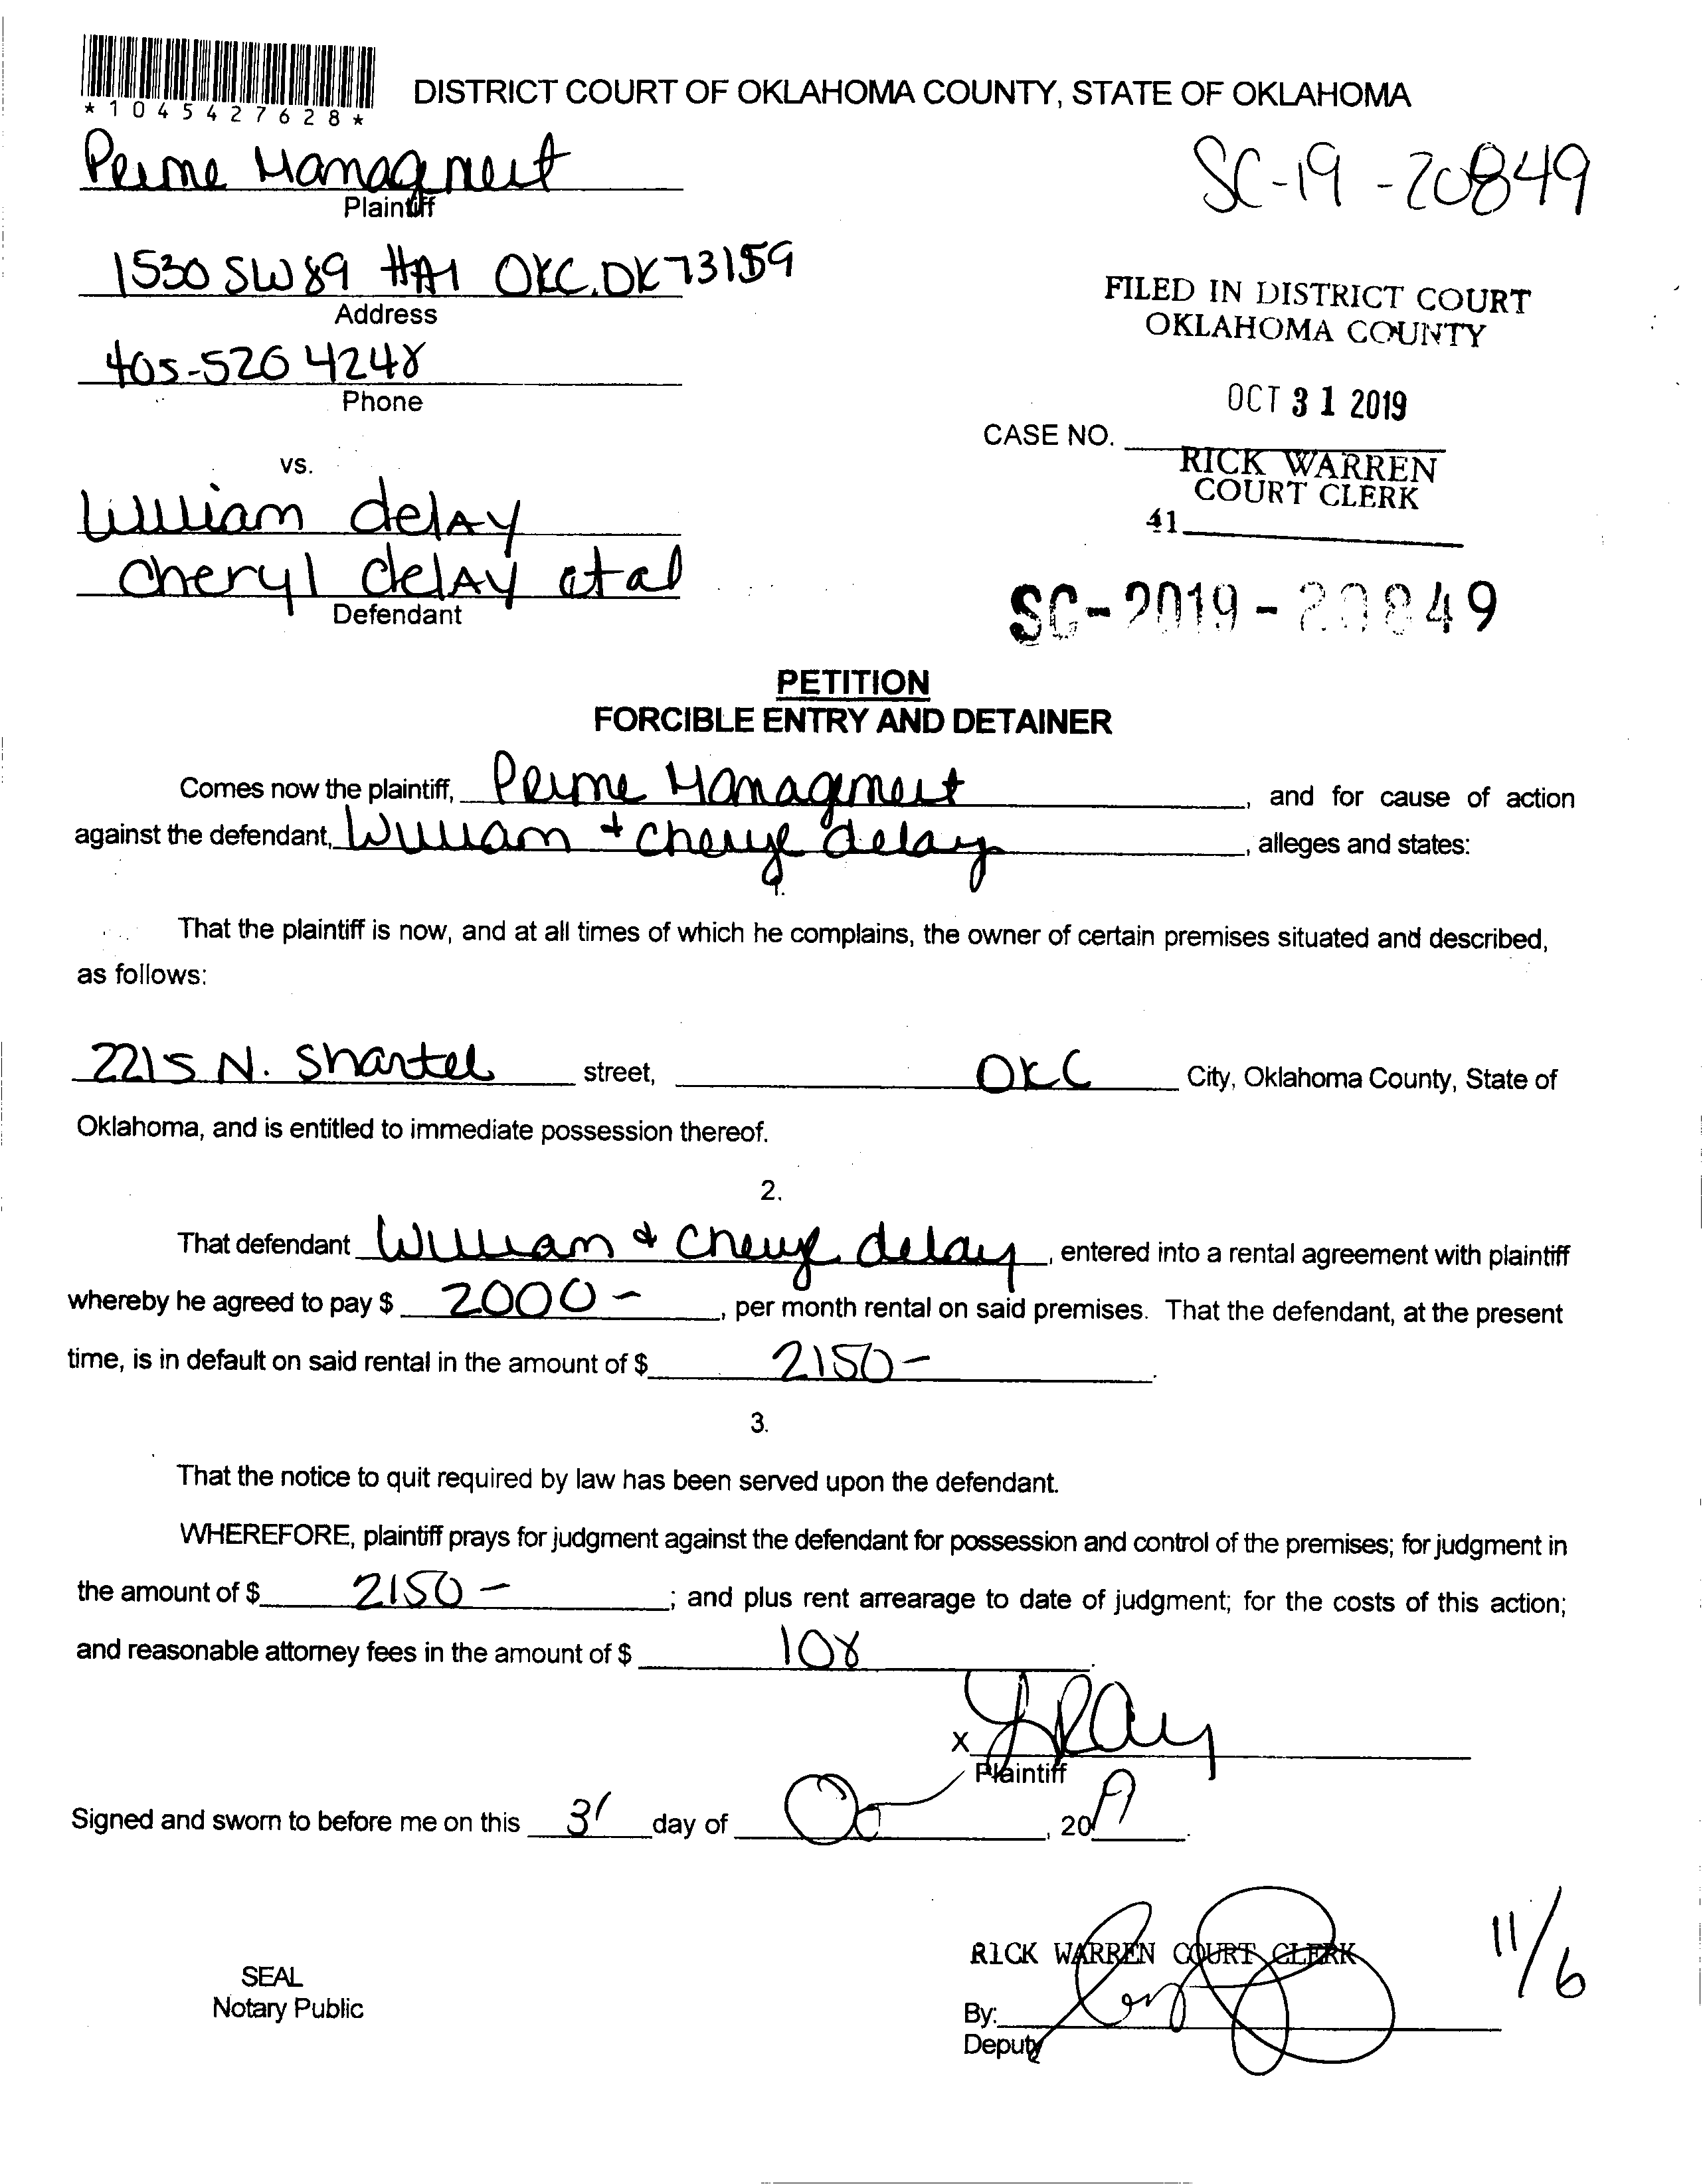 *1045427628*
DISTRICT COURT OF OKLAHOMA COUNTY, STATE OF OKLAHOMA
Prime Managment
Plaintiff
SC-19-20849
1530 SW 89 #A1 OKC. OK 73159
Address
FILED IN DISTRICT COURT
OKLAHOMA COUNTY
405-526 4248
Phone
OCT 31 2019
CASE NO.
RICK WARREN
COURT CLERK
41
vs.
William delay
Cheryl delay etal
Defendant
SC-2019-20849
PETITION
FORCIBLE ENTRY AND DETAINER
Comes now the plaintiff, Prime Managment, and for cause of action
against the defendant, William + Cheryl delay, alleges and states:
1.
That the plaintiff is now, and at all times of which he complains, the owner of certain premises situated and described,
as follows:
2215 N. Shartel street, OKC City, Oklahoma County, State of
Oklahoma, and is entitled to immediate possession thereof.
2.
That defendant William & Cheryl delay, entered into a rental agreement with plaintiff
whereby he agreed to pay $ 2000-, per month rental on said premises. That the defendant, at the present
time, is in default on said rental in the amount of $ 2150-.
3.
That the notice to quit required by law has been served upon the defendant.
WHEREFORE, plaintiff prays for judgment against the defendant for possession and control of the premises; for judgment in
the amount of $ 2150-; and plus rent arrearage to date of judgment; for the costs of this action;
and reasonable attorney fees in the amount of $ 108.
X
Plaintiff
Signed and sworn to before me on this 31 day of , 2019.
RICK WARREN COURT CLERK
11/6
SEAL
Notary Public
By:
Deputy